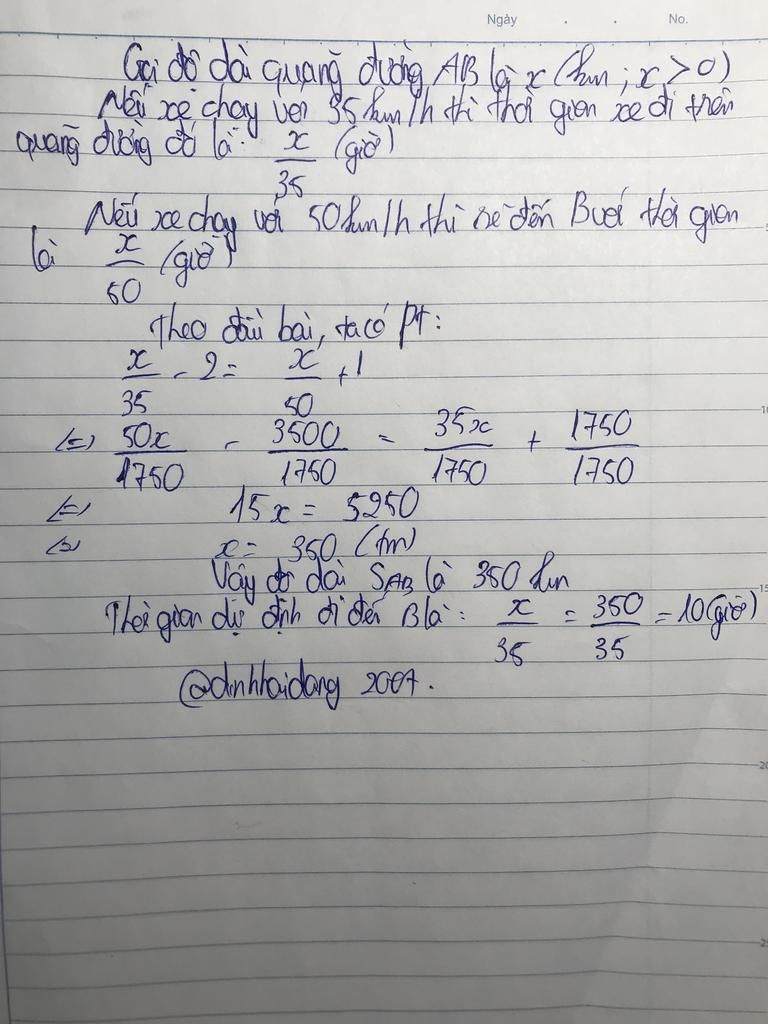 Ngày . . No.
Gọi độ dài quãng đường AB là x (km; x > 0)
Nếu xe chạy với 35 km/h thì thời gian xe đi trên
quãng đường đó là: x/35 (giờ)
Nếu xe chạy với 50 km/h thì xe đến B với thời gian
là x/50 (giờ)
Theo đầu bài, ta có pt:
x/35 - 2 = x/50 + 1
<=> 50x/1750 - 3500/1750 = 35x/1750 + 1750/1750
<=> 15x = 5250
<=> x = 350 (tm)
Vậy độ dài SAB là 350 km
Thời gian dự định đi đến B là: x/35 = 350/35 = 10 (giờ)
@dinhhaidang 2007.
10
15
20
25